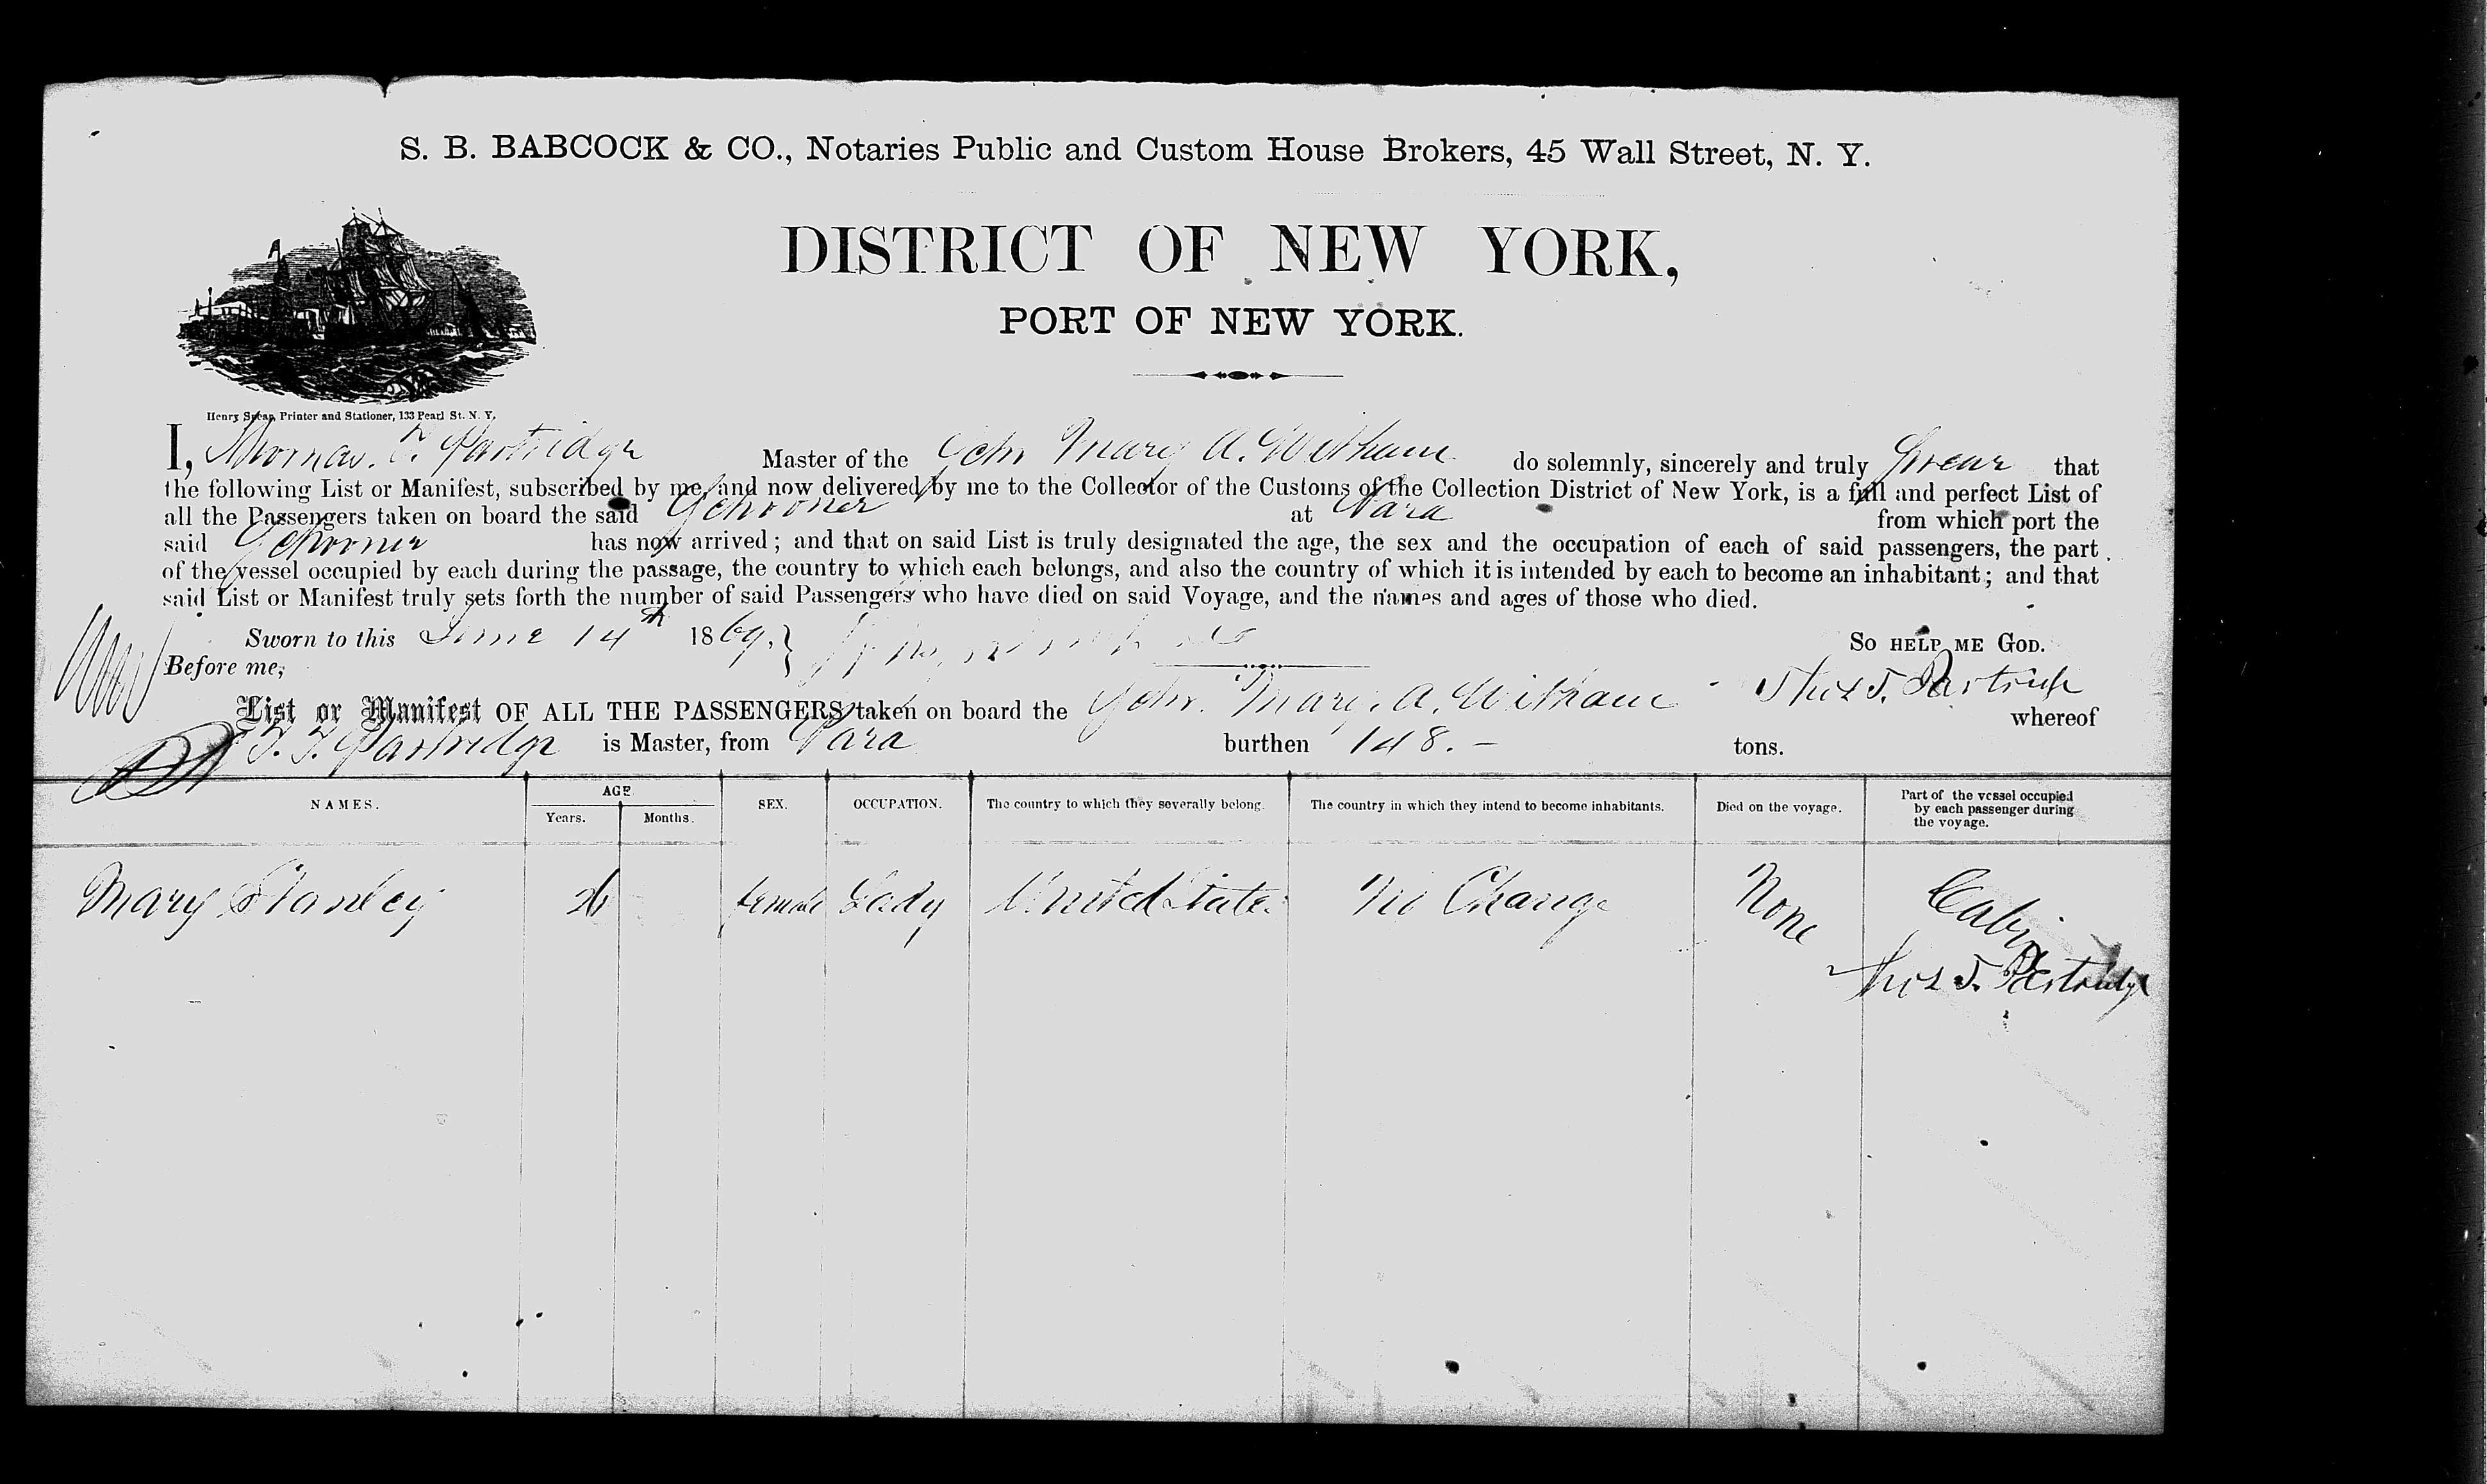 S. B. BABCOCK & CO., Notaries Public and Custom House Brokers, 45 Wall Street, N. Y.
DISTRICT OF NEW YORK,
PORT OF NEW YORK.
Henry Spear, Printer and Stationer, 133 Pearl St. N. Y.
I, Thomas. T. Partridge Master of the Schr Mary A. Witham do solemnly, sincerely and truly Swear that
the following List or Manifest, subscribed by me, and now delivered by me to the Collector of the Customs of the Collection District of New York, is a full and perfect List of
all the Passengers taken on board the said Schooner at Para from which port the
said Schooner has now arrived; and that on said List is truly designated the age, the sex and the occupation of each of said passengers, the part
of the vessel occupied by each during the passage, the country to which each belongs, and also the country of which it is intended by each to become an inhabitant; and that
said List or Manifest truly sets forth the number of said Passengers who have died on said Voyage, and the names and ages of those who died.
Sworn to this June 14th 1869. } SO HELP ME GOD.
Before me,
Thos T. Partridge
List or Manifest OF ALL THE PASSENGERS taken on board the Schr. Mary. A. Witham whereof
T. T. Partridge is Master, from Para burthen 148. - tons.
NAMES. AGE Years. Months. SEX. OCCUPATION. The country to which they severally belong. The country in which they intend to become inhabitants. Died on the voyage. Part of the vessel occupied by each passenger during the voyage.
Mary Stanley female Lady United States No Change None Cabin
Thos T. Partridge